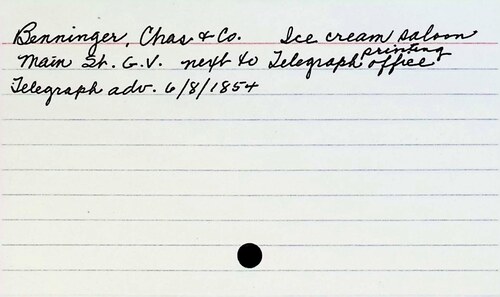 Benninger, Chas & Co. Ice cream saloon
Main St. G.V. next to Telegraph printing office
Telegraph adv. 6/8/1854